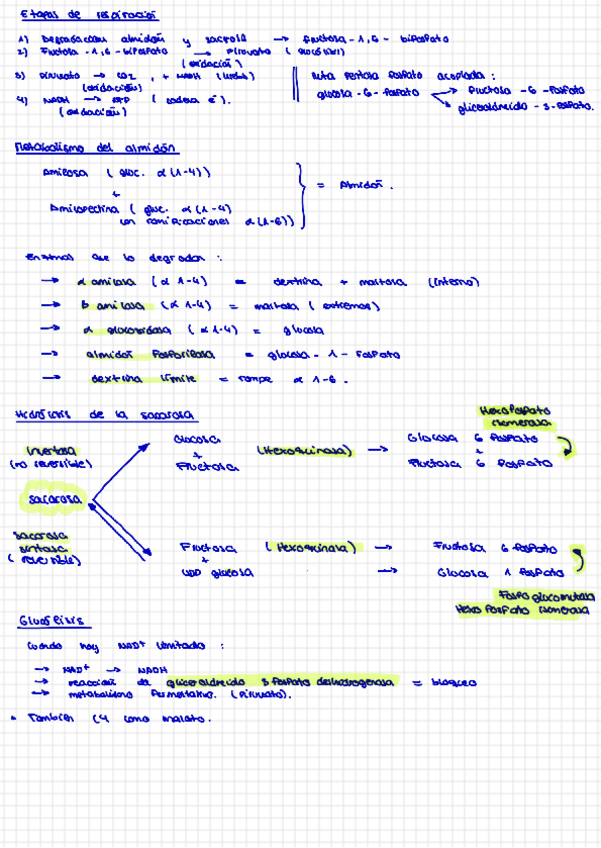 Etapas de respiración
1) Degradación almidón y sacarosa → Fructosa-1,6-bifosfato
2) Fructosa-1,6-bifosfato → Piruvato (glucólisis)
(oxidación)
3) Piruvato → CO2, + NADH (Krebs)
(oxidación)
4) NADH → ATP (cadena é).
(oxidación)
Ruta pentosa fosfato acoplada:
glucosa-6-fosfato → Fructosa-6-fosfato
→ gliceraldheido-3-fosfato.
Metabolismo del almidón
Amilosa (gluc. α(1-4))
+
Amilopectina (gluc. α(1-4)
con ramificaciones α(1-6))
= Almidón.
Enzimas que lo degradan:
→ α amilasa (α 1-4) = dextrina + maltosa (interno)
→ B amilasa (α 1-4) = maltosa (extremos)
→ α glucosidasa (α 1-4) = glucosa
→ almidón fosforilasa = glucosa-1-fosfato
→ dextrina límite = rompe α 1-6.
Hidrólisis de la sacarosa
Hexofosfato
isomerasa
Invertasa
(no reversible)
Glucosa
+
Fructosa
(Hexoquinasa) →
Glucosa 6 fosfato
+
Fructosa 6 fosfato
sacarosa
sacarosa
sintasa
(reversible)
Fructosa (Hexoquinasa) → Fructosa 6 fosfato
+
UDP glucosa → Glucosa 1 fosfato
Fosfo glucomutasa
Hexo fosfato isomerasa
Glucólisis
Cuando hay NAD+ limitado:
→ NAD+ → NADH
→ reacción de gliceraldheido 3 fosfato deshidrogenasa = bloqueo
→ metabolismo fermentativo. (Piruvato).
• También C4 como malato.